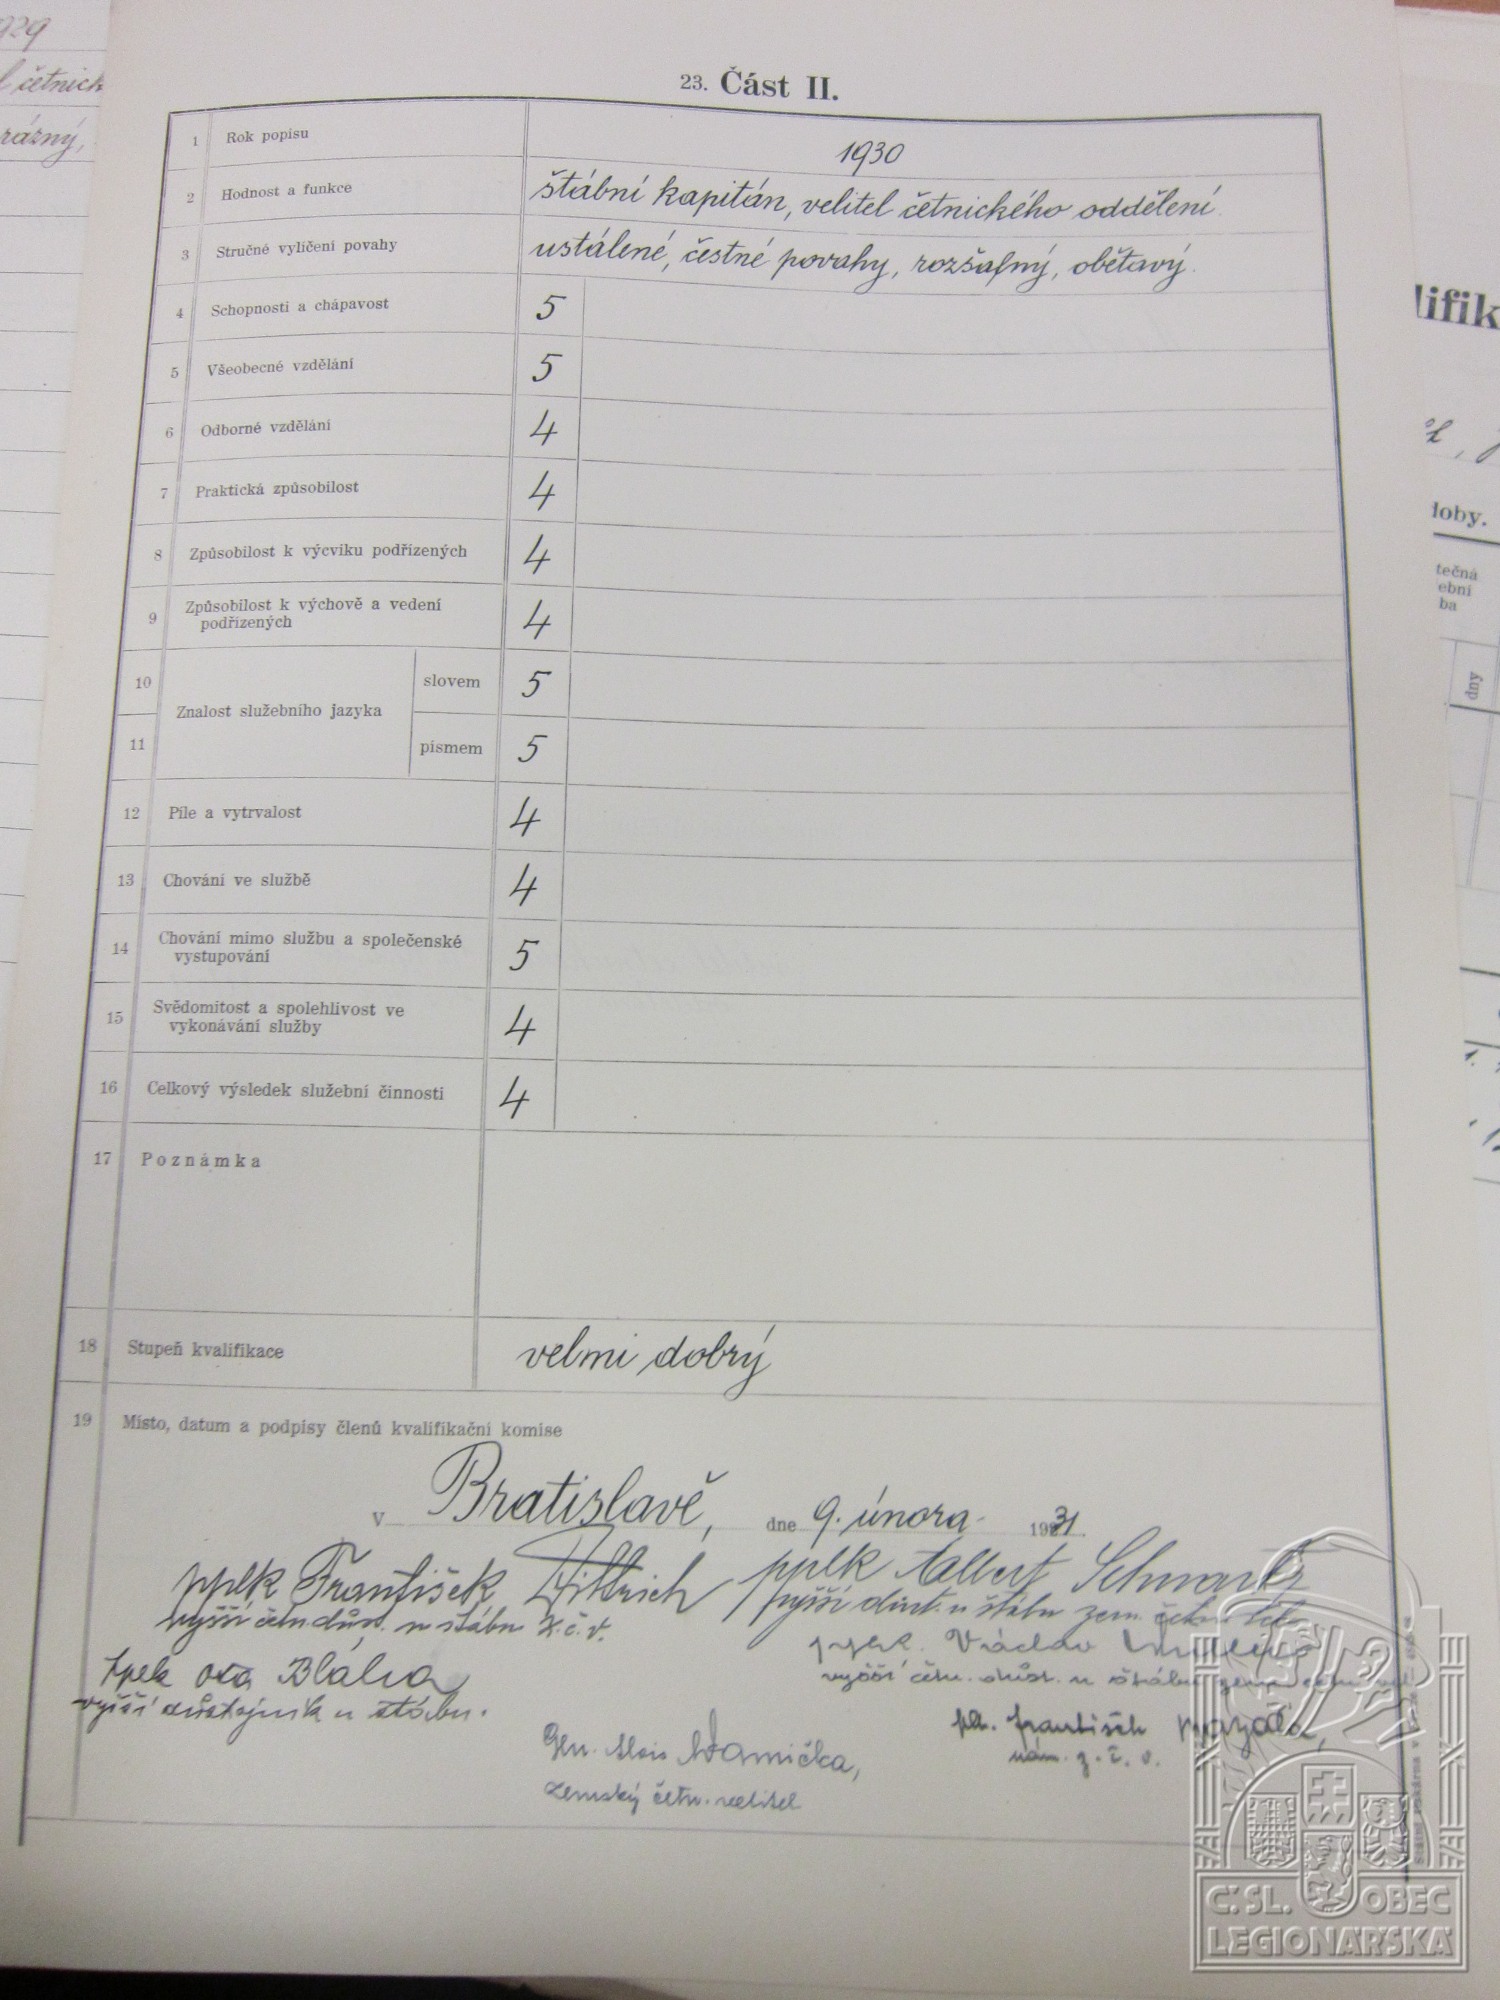 1929
četnick
rázný,
23. Část II.
1 Rok popisu 1930
2 Hodnost a funkce štábní kapitán, velitel četnického oddělení.
3 Stručné vylíčení povahy ustálené, čestné povahy, rozšafný, obětavý.
4 Schopnosti a chápavost 5
5 Všeobecné vzdělání 5
6 Odborné vzdělání 4
7 Praktická způsobilost 4
8 Způsobilost k výcviku podřízených 4
9 Způsobilost k výchově a vedení
podřízených 4
10 Znalost služebního jazyka slovem 5
11 písmem 5
12 Píle a vytrvalost 4
13 Chování ve službě 4
14 Chování mimo službu a společenské
vystupování 5
15 Svědomitost a spolehlivost ve
vykonávání služby 4
16 Celkový výsledek služební činnosti 4
17 Poznámka
18 Stupeň kvalifikace velmi dobrý
19 Místo, datum a podpisy členů kvalifikační komise
V Bratislavě, dne 9. února 1931.
pplk František Dittrich
vyšší četn. důst. u štábu z.č.v.
pplk Albert Schwarz
vyšší důst. u štábu zem. četn. vel.
Bláha
vyšší důstojník u štábu.
pplk. Václav
vyšší četn. důst. u štábu zem. četn. vel.
Gen. Alois
zemský četn. velitel
plk. František
nám. z. č. v.
lifik
doby.
tečná
ební
ba
dny
Č.SL. OBEC
LEGIONÁŘSKÁ